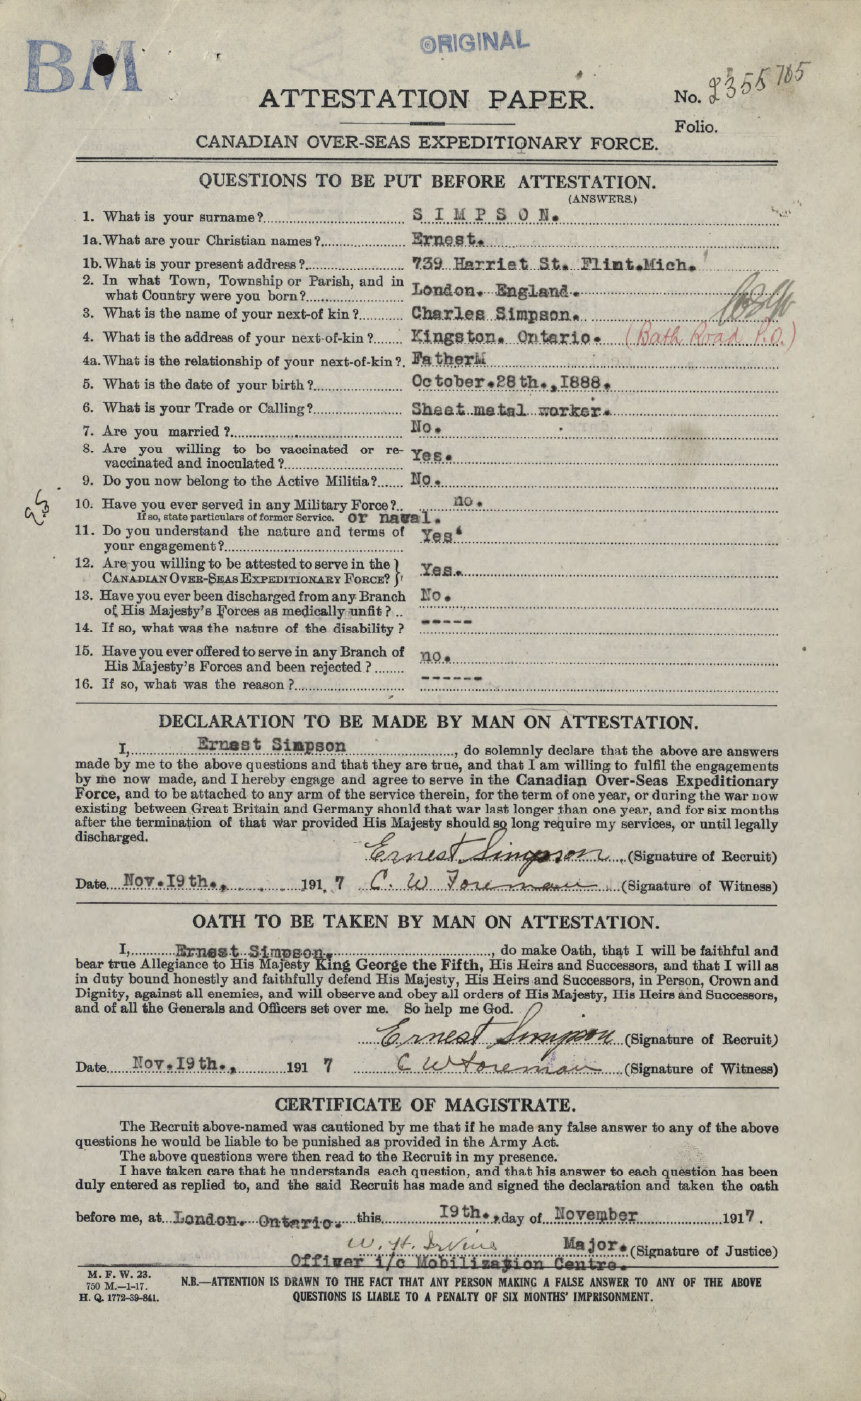 BM
ORIGINAL
ATTESTATION PAPER.
No. 2355765
Folio.
CANADIAN OVER-SEAS EXPEDITIONARY FORCE.
QUESTIONS TO BE PUT BEFORE ATTESTATION.
(ANSWERS.)
1. What is your surname? S I M P S O N.
1a. What are your Christian names? Ernest.
1b. What is your present address? 739 Harriet St. Flint.Mich.
2. In what Town, Township or Parish, and in
what Country were you born? London. England.
3. What is the name of your next-of kin? Charles Simpson.
4. What is the address of your next-of-kin? Kingston. Ontario. (Bath Road P.O.)
4a. What is the relationship of your next-of-kin? Father
5. What is the date of your birth? October.28th.,1888.
6. What is your Trade or Calling? Sheet metal worker.
7. Are you married? No.
8. Are you willing to be vaccinated or re-
vaccinated and inoculated? Yes.
9. Do you now belong to the Active Militia? No.
10. Have you ever served in any Military Force? no.
If so, state particulars of former Service. or naval.
11. Do you understand the nature and terms of
your engagement? Yes
12. Are you willing to be attested to serve in the }
CANADIAN OVER-SEAS EXPEDITIONARY FORCE? } Yes.
13. Have you ever been discharged from any Branch No.
of His Majesty's Forces as medically unfit?
14. If so, what was the nature of the disability? -----
15. Have you ever offered to serve in any Branch of
His Majesty's Forces and been rejected? no.
16. If so, what was the reason? ------
DECLARATION TO BE MADE BY MAN ON ATTESTATION.
I, Ernest Simpson, do solemnly declare that the above are answers
made by me to the above questions and that they are true, and that I am willing to fulfil the engagements
by me now made, and I hereby engage and agree to serve in the Canadian Over-Seas Expeditionary
Force, and to be attached to any arm of the service therein, for the term of one year, or during the war now
existing between Great Britain and Germany should that war last longer than one year, and for six months
after the termination of that war provided His Majesty should so long require my services, or until legally
discharged.
Ernest Simpson (Signature of Recruit)
Date Nov.19th., 191 7 C. W Foreman (Signature of Witness)
OATH TO BE TAKEN BY MAN ON ATTESTATION.
I, Ernest Simpson, do make Oath, that I will be faithful and
bear true Allegiance to His Majesty King George the Fifth, His Heirs and Successors, and that I will as
in duty bound honestly and faithfully defend His Majesty, His Heirs and Successors, in Person, Crown and
Dignity, against all enemies, and will observe and obey all orders of His Majesty, His Heirs and Successors,
and of all the Generals and Officers set over me. So help me God.
Ernest Simpson (Signature of Recruit)
Date Nov.19th., 191 7 C W Foreman (Signature of Witness)
CERTIFICATE OF MAGISTRATE.
The Recruit above-named was cautioned by me that if he made any false answer to any of the above
questions he would be liable to be punished as provided in the Army Act.
The above questions were then read to the Recruit in my presence.
I have taken care that he understands each question, and that his answer to each question has been
duly entered as replied to, and the said Recruit has made and signed the declaration and taken the oath
before me, at London. Ontario. this 19th., day of November 1917.
W. H. Irvine Major. (Signature of Justice)
Officer i/c Mobilization Centre.
M. F. W. 23.
750 M.—1-17.
H. Q. 1772-39-841.
N.B.—ATTENTION IS DRAWN TO THE FACT THAT ANY PERSON MAKING A FALSE ANSWER TO ANY OF THE ABOVE
QUESTIONS IS LIABLE TO A PENALTY OF SIX MONTHS' IMPRISONMENT.